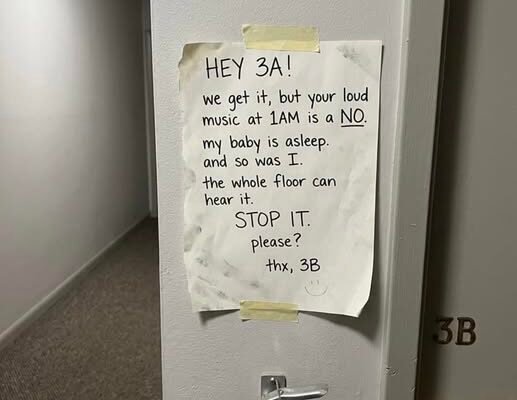 HEY 3A!
we get it, but your loud
music at 1AM is a NO.
my baby is asleep.
and so was I.
the whole floor can
hear it.
STOP IT.
please?
thx, 3B
3B